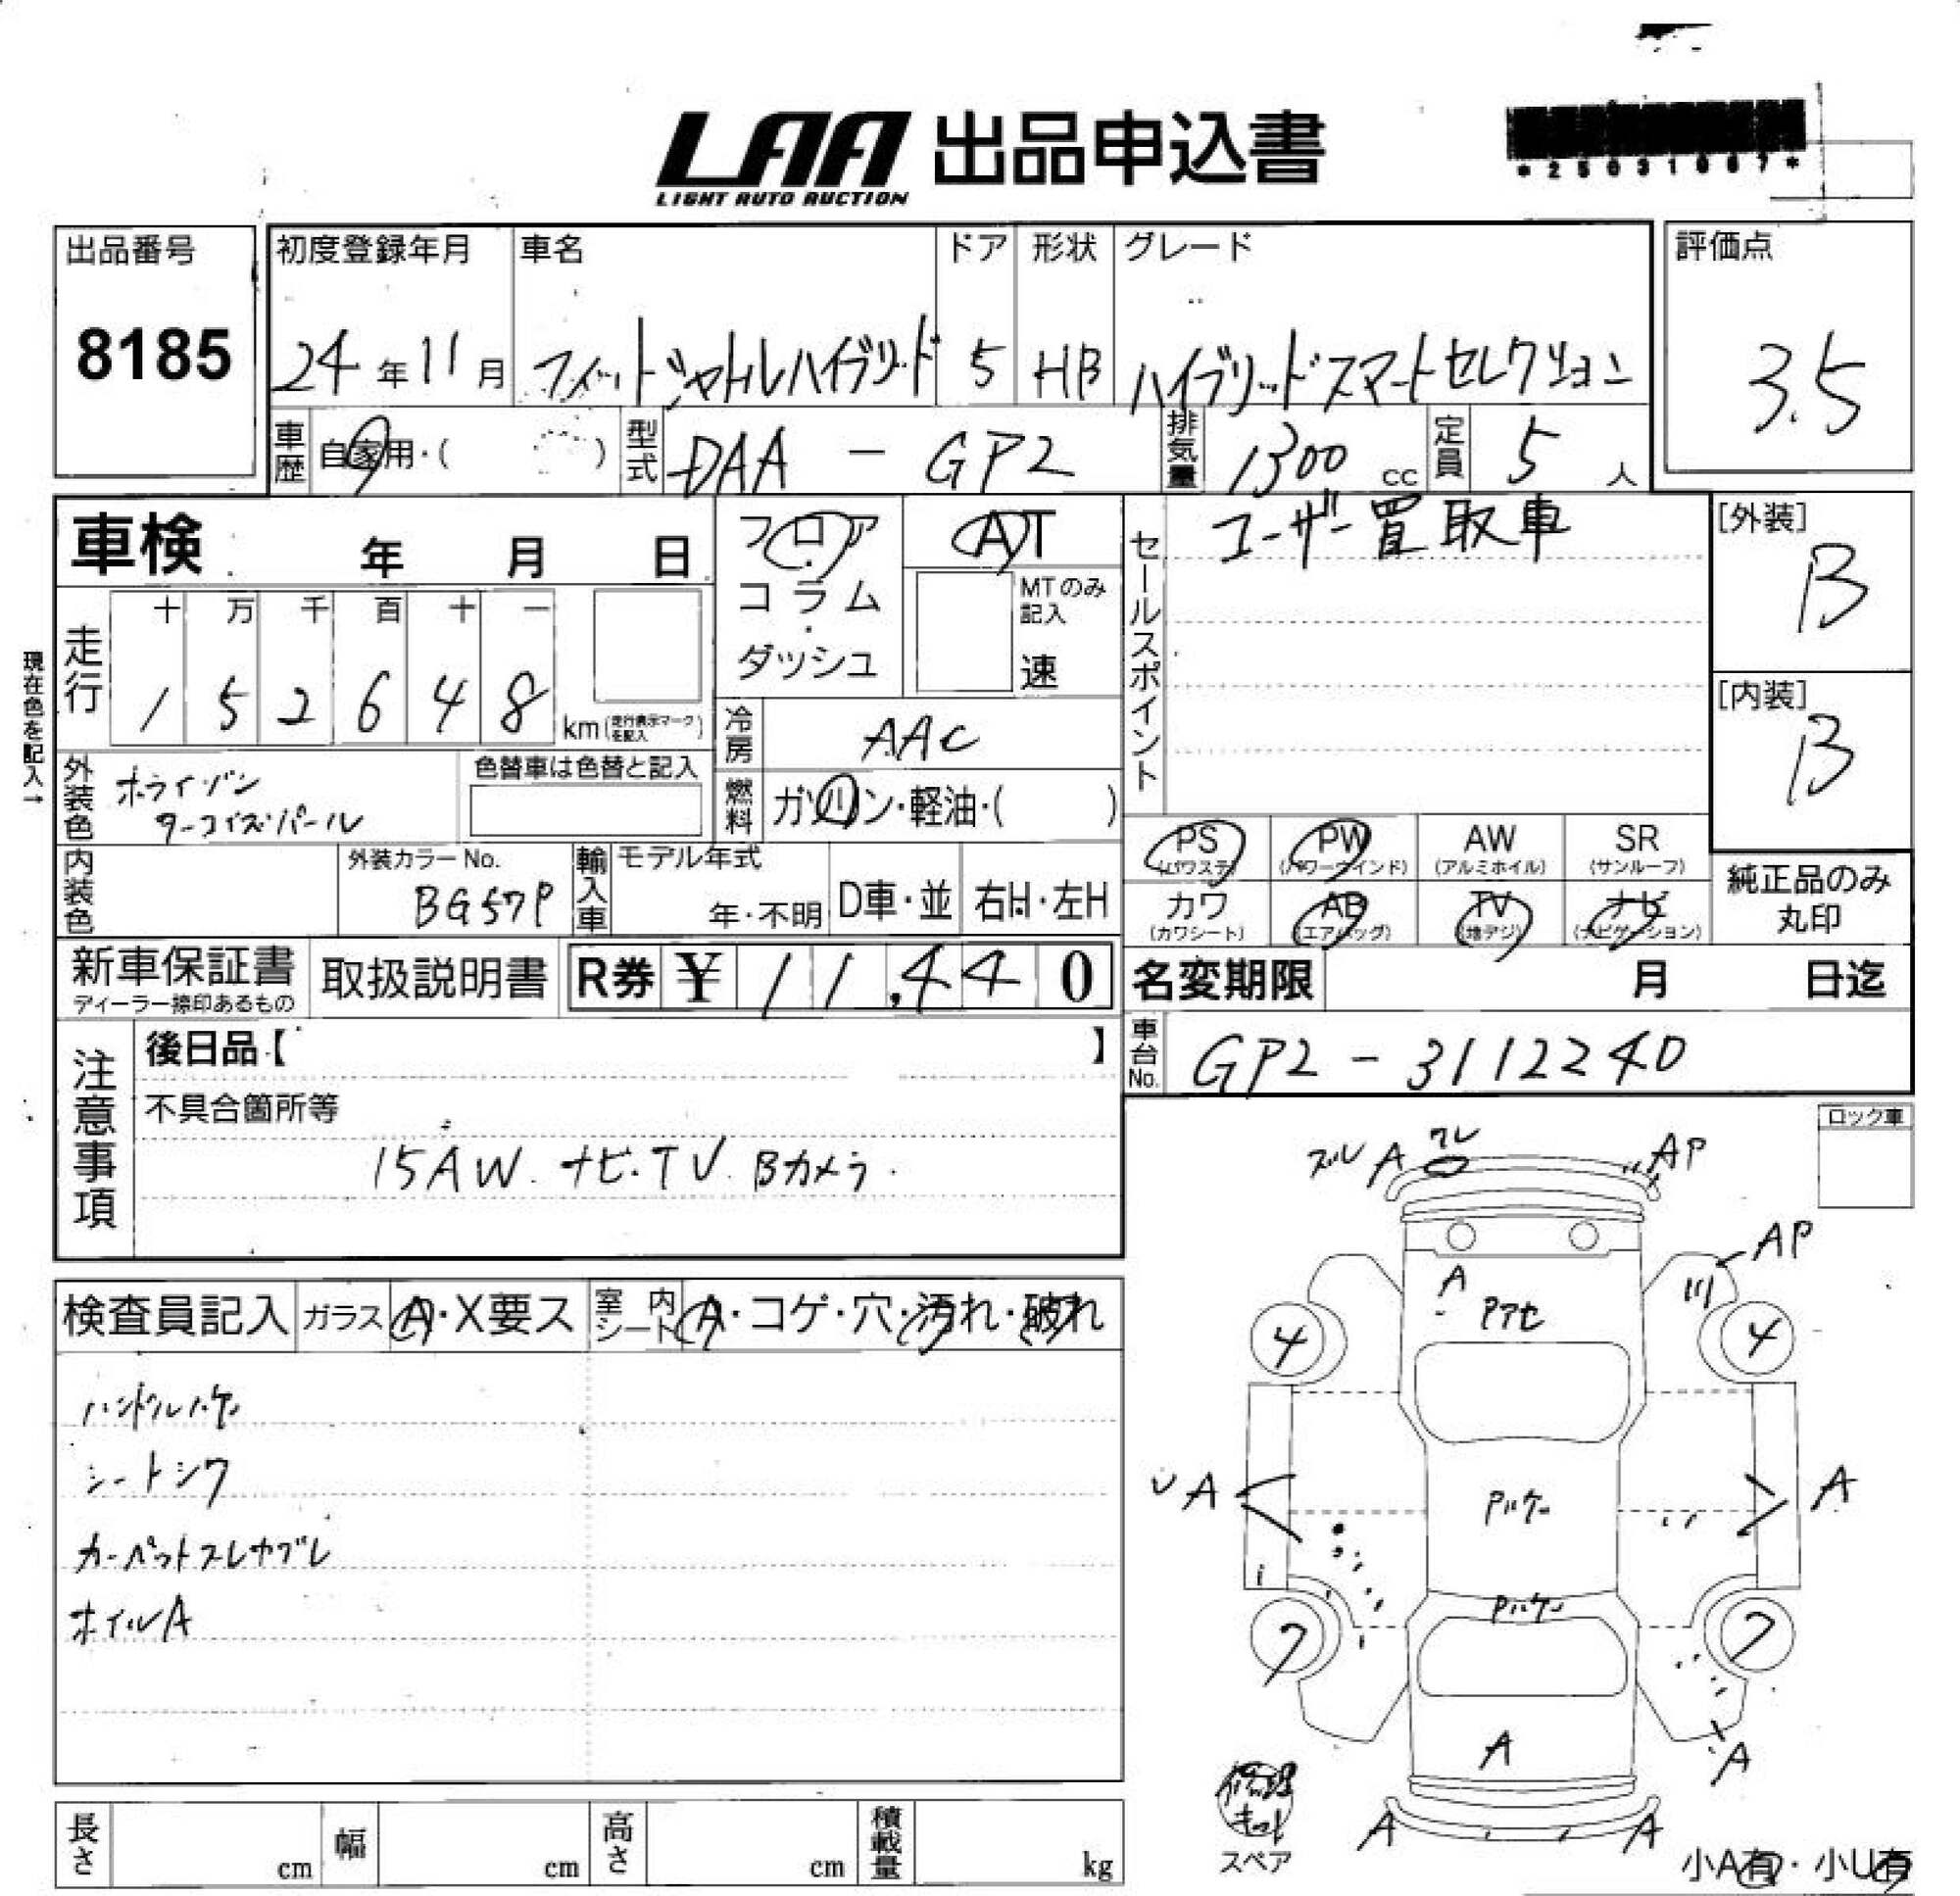 LAA 出品申込書
LIGHT AUTO AUCTION
*25031007*
出品番号
8185
初度登録年月
24年11月
車名
フィットシャトルハイブリッド
ドア
5
形状
HB
グレード
ハイブリッドスマートセレクション
評価点
3.5
車歴 自家用・( )
型式 DAA - GP2
排気量 1300 cc
定員 5人
車検 年 月 日
フロア・コラム・ダッシュ
AT
MTのみ記入
速
セールスポイント
ユーザー買取車
[外装]
B
[内装]
B
走行
十 万 千 百 十 一
1 5 2 6 4 8 km(走行表示マークを記入)
現在色を記入→
冷房 AAC
燃料 ガソリン・軽油・( )
外装色 ホライゾン
ターコイズパール
色替車は色替と記入
内装色
外装カラーNo.
BG57P
輸入車
モデル年式
年・不明
D車・並
右H・左H
PS (パワステ)
PW (パワーウインド)
AW (アルミホイル)
SR (サンルーフ)
カワ (カワシート)
AB (エアバッグ)
TV (地デジ)
ナビ (ナビゲーション)
純正品のみ
丸印
新車保証書
ディーラー捺印あるもの
取扱説明書
R券 ¥ 11,440
名変期限 月 日迄
車台No. GP2-3112240
注意事項
後日品【 】
不具合箇所等
15AW.ナビ.TV.Bカメラ.
ロック車
検査員記入
ガラス A・X要ス
室内シート A・コゲ・穴・汚れ・破れ
ハンドルハゲ
シートシワ
カーペットスレヤブレ
ホイルA
ズレ A ワレ
AP
AP
A
Pアセ
4
4
A
Pハゲ
A
Pハゲ
7
7
A
A
A
A
修理
キット
スペア
長さ cm
幅 cm
高さ cm
積載量 kg
小A有・小U有